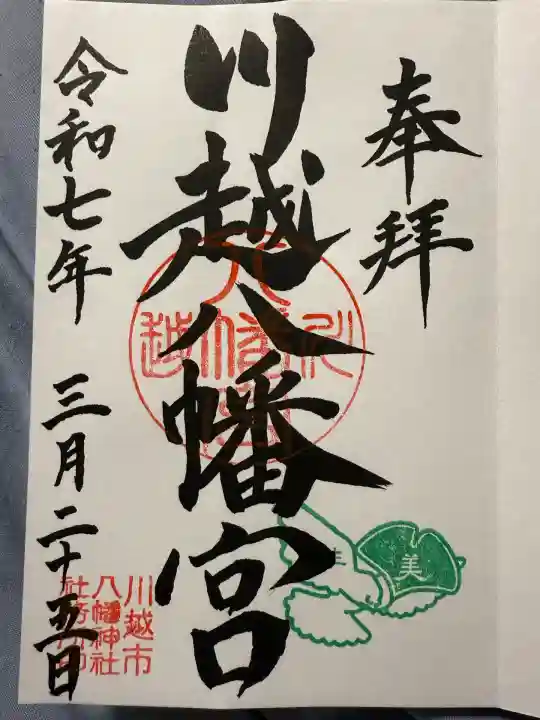 奉拝
川越八幡宮
令和七年 三月二十五日
川越
八幡宮
川越市
八幡神社
社務所印
美